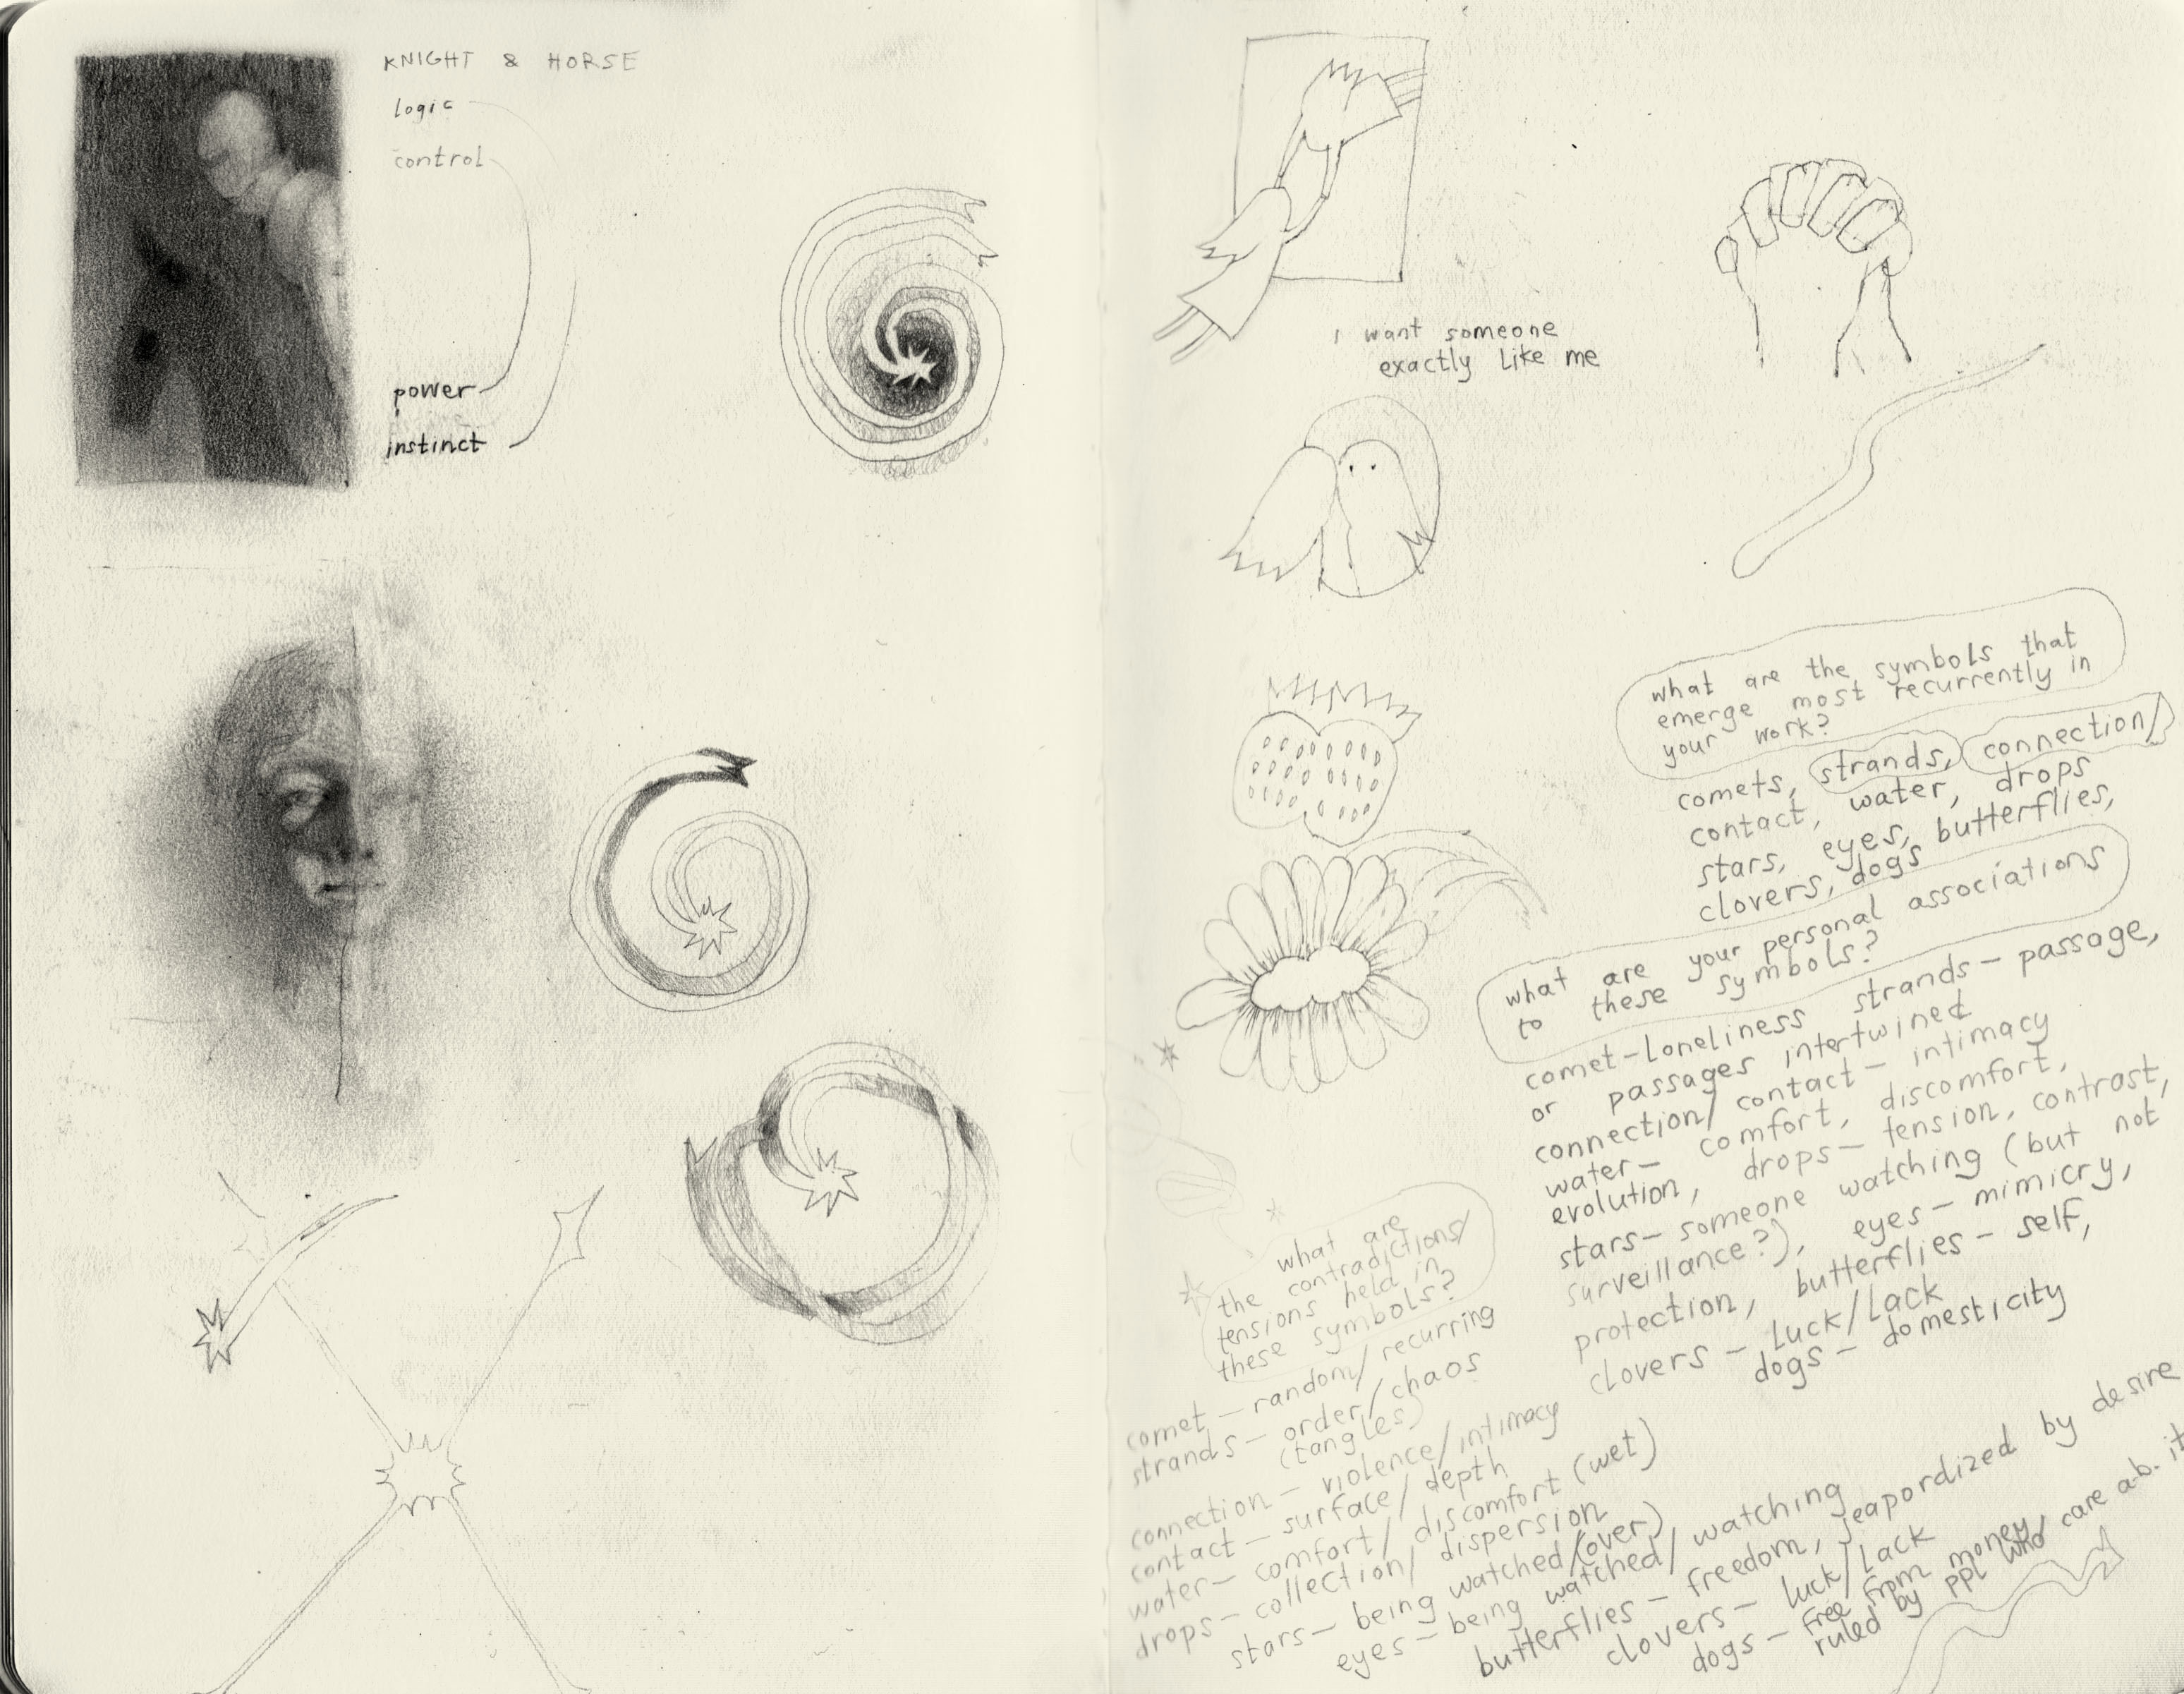 KNIGHT & HORSE
logic
control
power
instinct
I want someone
exactly like me
what are the symbols that
emerge most recurrently in
your work?
comets, strands, connection/
contact, water, drops
stars, eyes, butterflies,
clovers, dogs
what are your personal associations
to these symbols?
comet - loneliness strands - passage,
or passages intertwined
connection/contact - intimacy
water - comfort, discomfort,
evolution, drops - tension, contrast,
stars - someone watching (but not
surveillance?), eyes - mimicry,
protection, butterflies - self,
clovers - luck/lack
dogs - domesticity
what are
the contradictions/
tensions held in
these symbols?
comet - random/recurring
strands - order/chaos
(tangles)
connection - violence/intimacy
contact - surface/depth
water - comfort/discomfort (wet)
drops - collection/dispersion
stars - being watched (over)
eyes - being watched/watching
butterflies - freedom, jeapordized by desire
clovers - luck/lack
dogs - free from money,
ruled by ppl who care ab. it